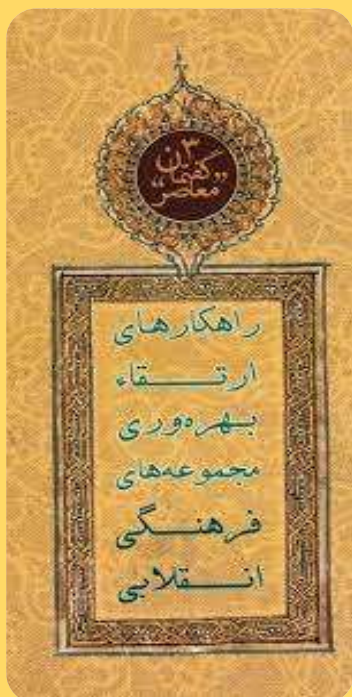 ۳
گفتمان
معاصر
راهکارهای
ارتقاء
بهره‌وری
مجموعه‌های
فرهنگی
انقلابی